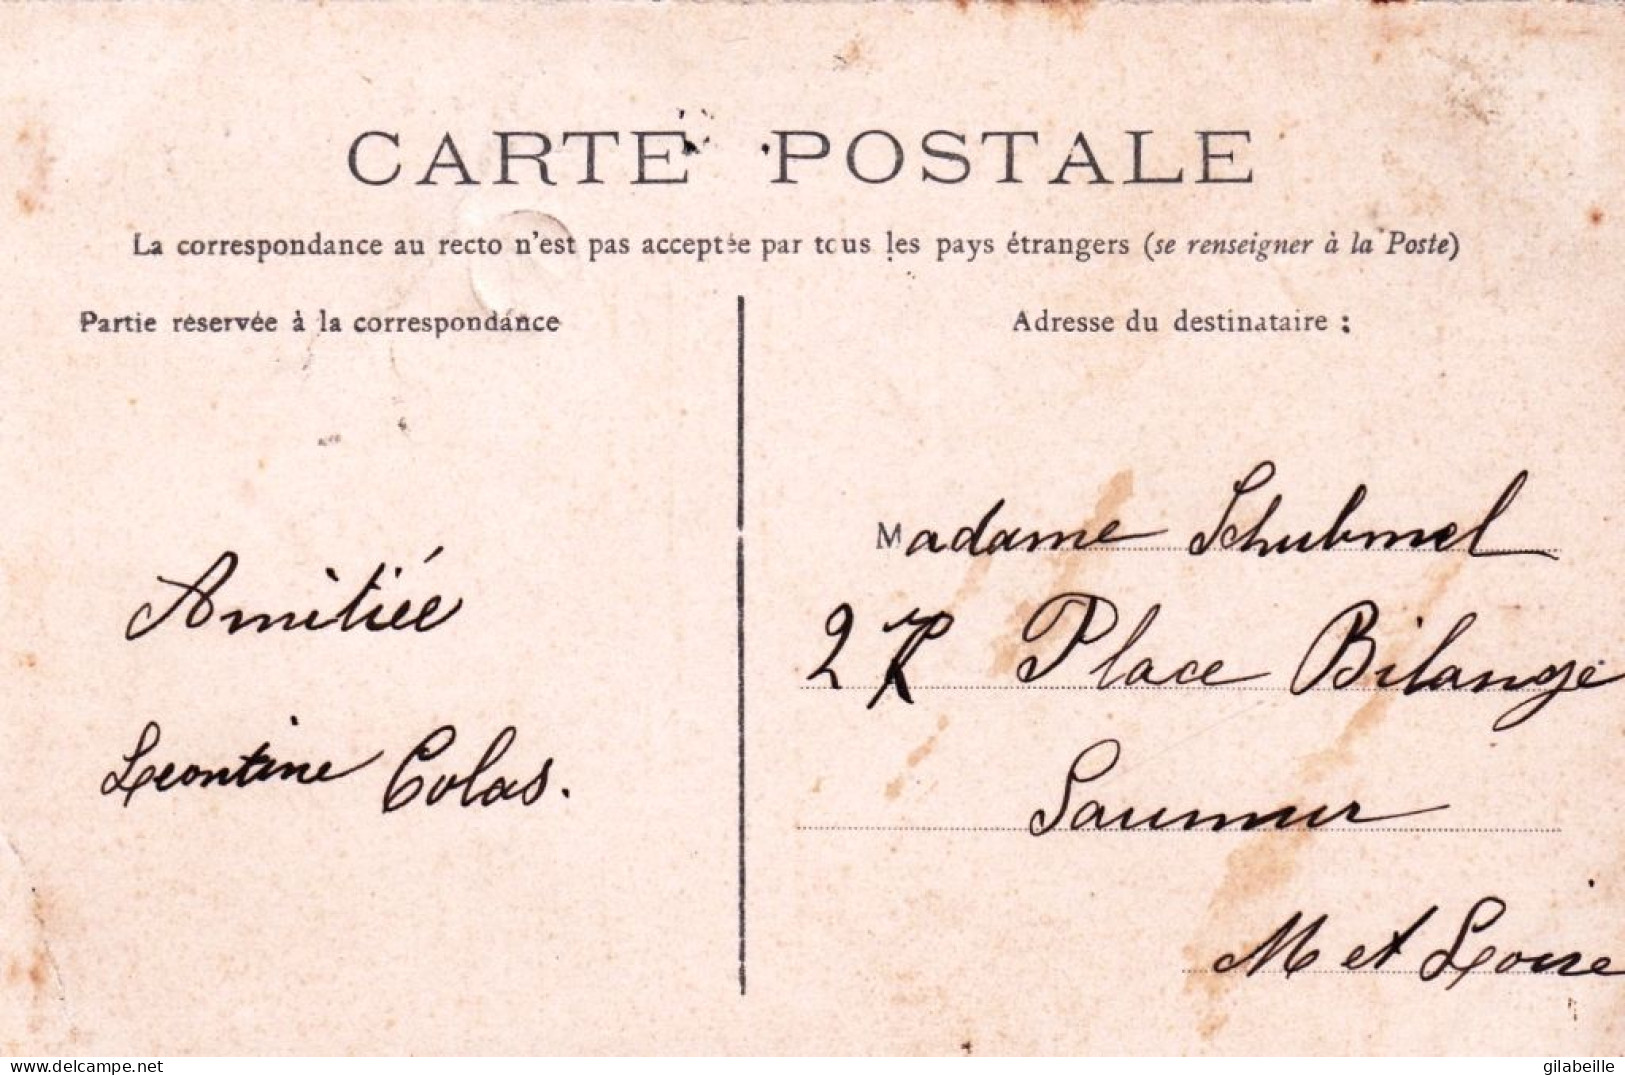 CARTE POSTALE
La correspondance au recto n'est pas acceptée par tous les pays étrangers (se renseigner à la Poste)
Partie réservée à la correspondance
Amitiée
Leontine Colas.
Adresse du destinataire :
Madame Schubmel
27 Place Bilange
Saumur
M et Loire
delcampe.net
gilabeille